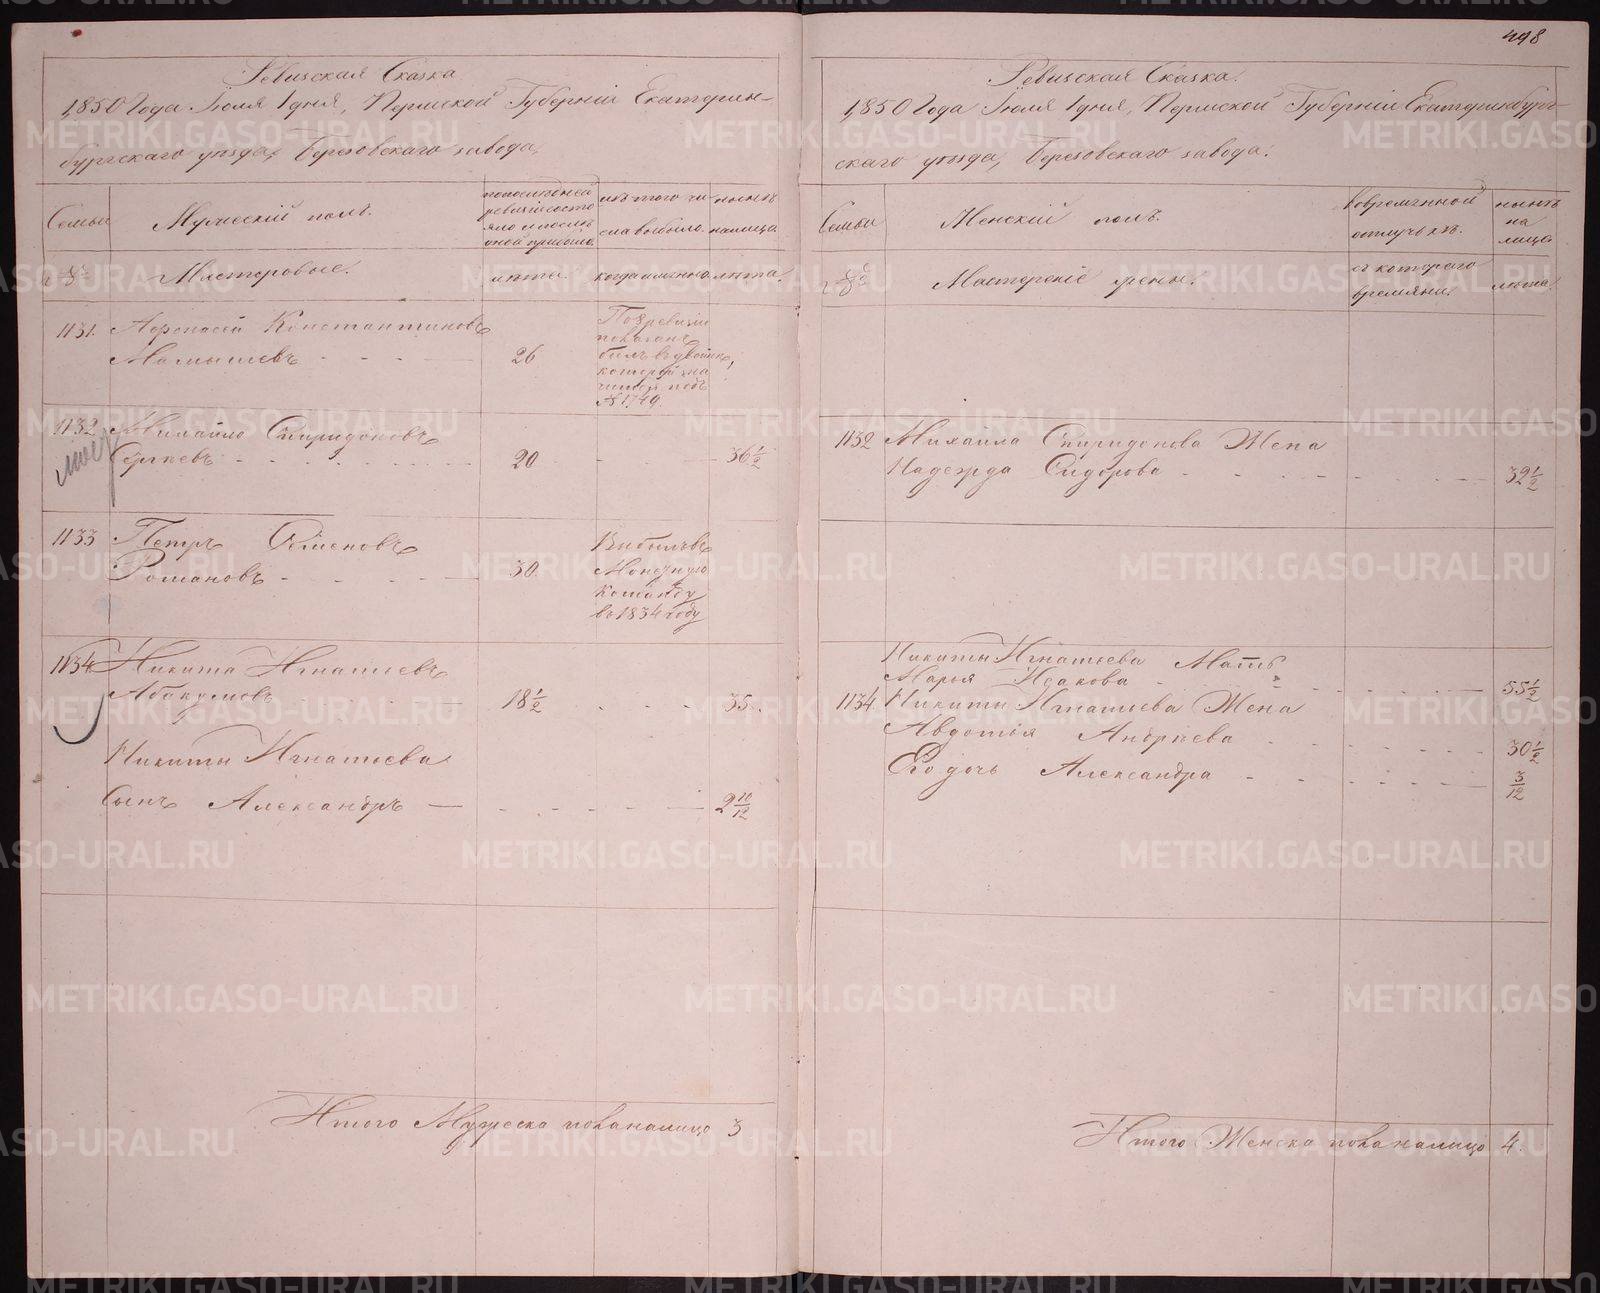 498
Ревизская Сказка
1850 Года Июля 1 дня, Пермской Губерніи Екатерин-
бургскаго уѣзда, Березовскаго завода,
Семьи
Мужескій полъ.
по последней
ревизіи состо
яло и послѣ
оной прибыло.
изъ того чи-
сла выбыло.
нынѣ
налицо.
№
Мастеровые.
лѣта.
когда именно.
лѣта.
1131. Афонасей Константиновъ
Мамышевъ - - - 26
По 8 ревизіи
показанъ
былъ вдвойнѣ,
которой зна
чится подъ
№ 1749.
1132 Михайло Спиридоновъ
Сергѣевъ - - - 20 - - - 36 1/2
1133 Петръ Семеновъ
Романовъ - - - 30
Выбылъ въ
Монетную
Команду
въ 1834 году
1134 Никита Игнатьевъ
Абакумовъ - - - 18 1/2 - - - 35.
Никиты Игнатьева
Сынъ Александръ - - - 2 10/12
Итого Мужеска пола налицо 3
Ревизская Сказка.
1850 Года Июля 1 дня, Пермской Губерніи Екатеринбург-
скаго уѣзда, Березовскаго завода.
Семьи
Женскій полъ.
во временной
отлучкѣ.
нынѣ
на
лицо
№
Мастерскіе жены.
съ котораго
времяни.
лѣта.
1132 Михайла Спиридонова Жена
Надежда Сидорова - - - 32 1/2
Никиты Игнатьева Мать
Марья Исакова - - - 55 1/2
1134 Никиты Игнатьева Жена
Авдотья Андрѣева - - - 30 1/2
Его дочь Александра - - - 3/12
Итого Женска пола налицо 4.
METRIKI.GASO-URAL.RU